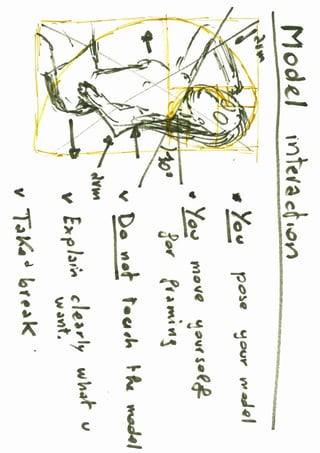 Model interaction
arm
30°
arm
You pose your model
You move yourself
for framing
Do not touch the model
Explain clearly what u
want.
Take a break